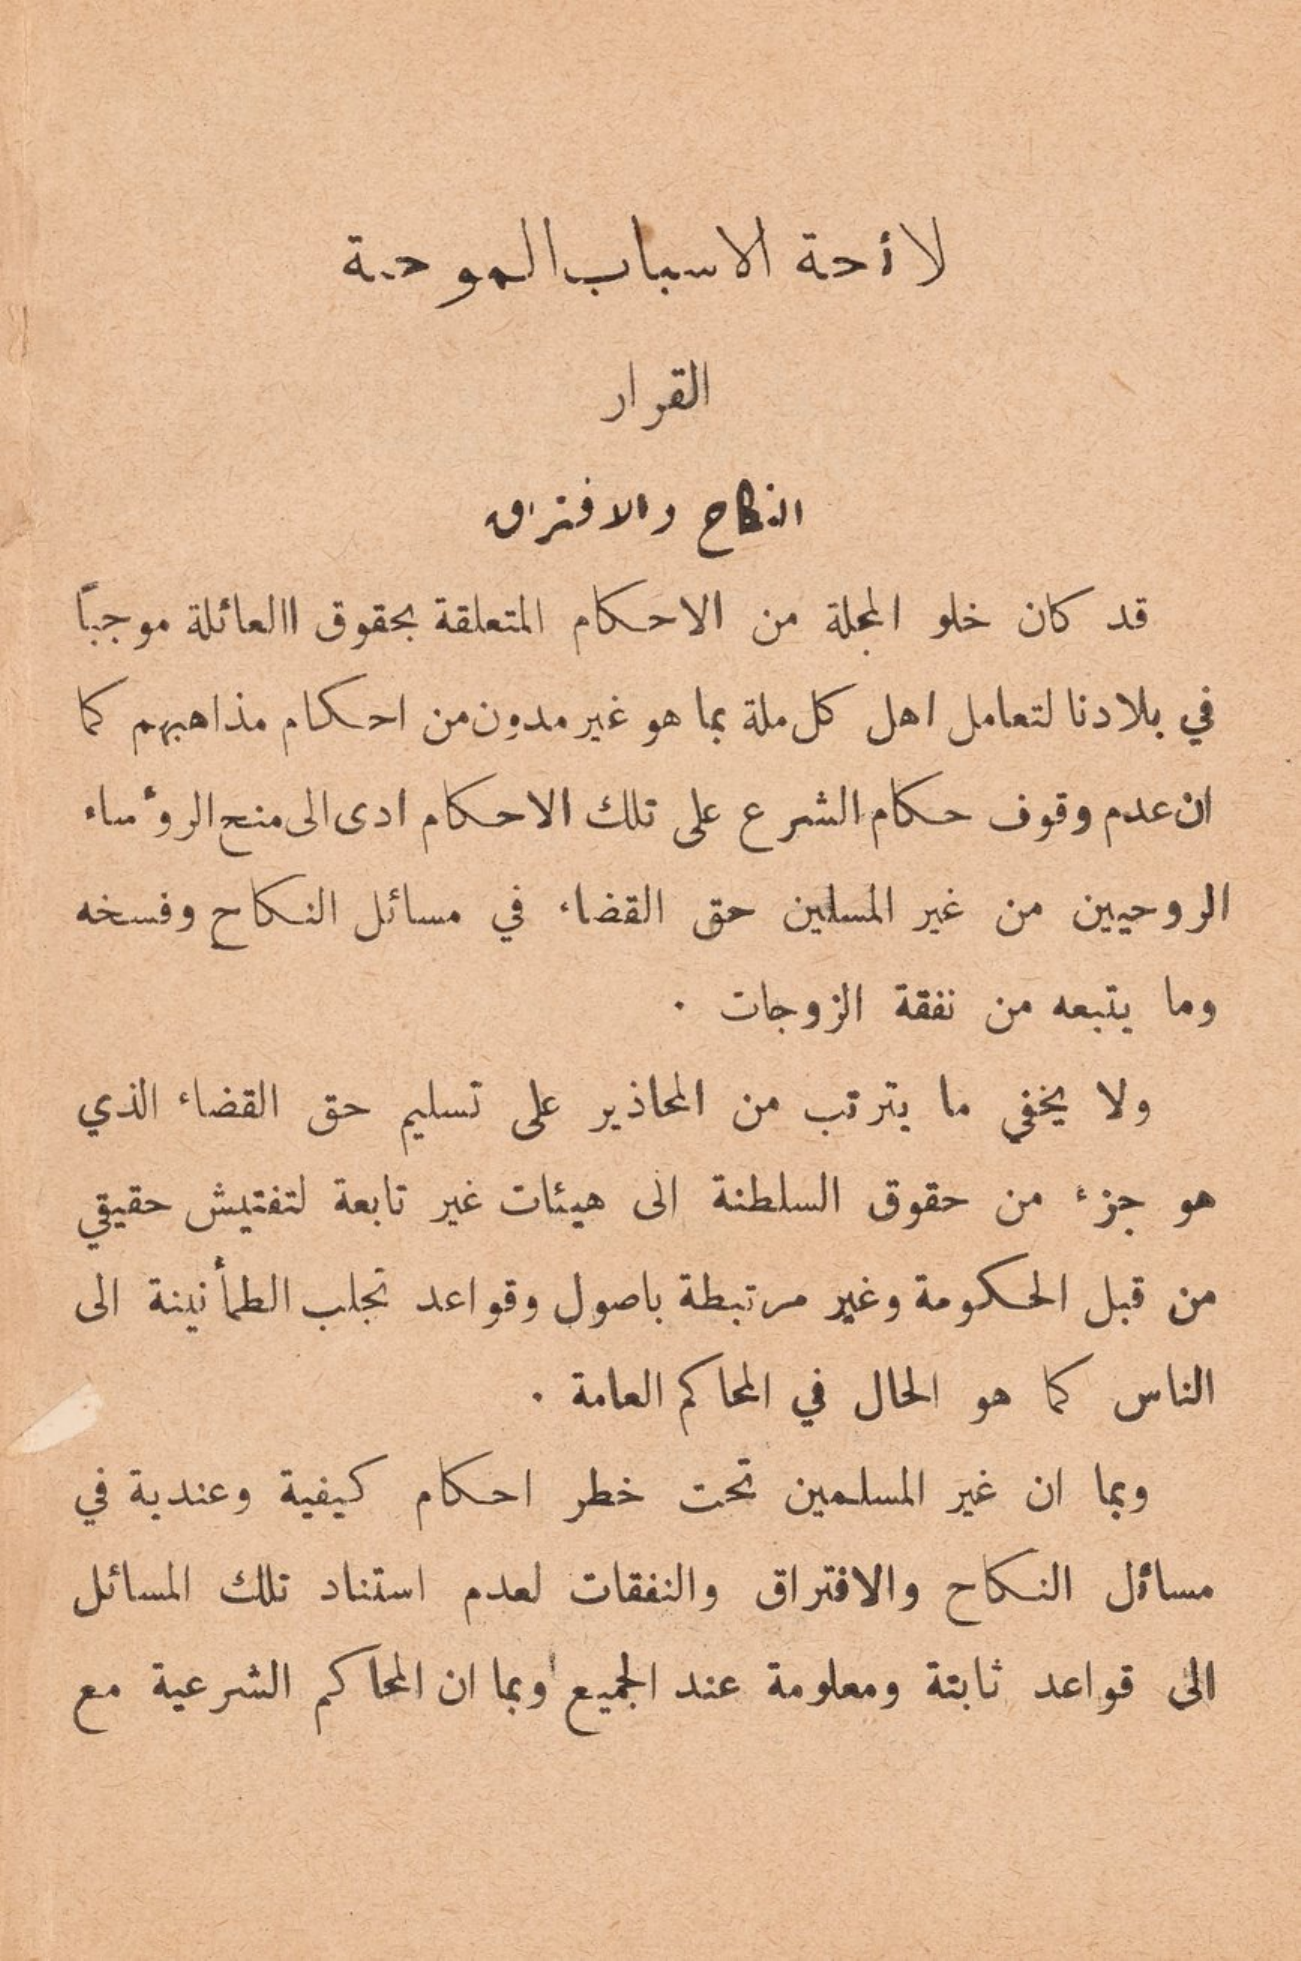 لائحة الاسباب الموجبة
القرار
النكاح والافتراق
قد كان خلو المجلة من الاحكام المتعلقة بحقوق االعائلة موجبًا
في بلادنا لتعامل اهل كل ملة بما هو غير مدون من احكام مذاهبهم كما
ان عدم وقوف حكام الشرع على تلك الاحكام ادى الى منح الروٴساء
الروحيين من غير المسلمين حق القضاء في مسائل النكاح وفسخه
وما يتبعه من نفقة الزوجات .
ولا يخفي ما يترتب من المحاذير على تسليم حق القضاء الذي
هو جزء من حقوق السلطنة الى هيئات غير تابعة لتفتيش حقيقي
من قبل الحكومة وغير مرتبطة باصول وقواعد تجلب الطمأنينة الى
الناس كما هو الحال في المحاكم العامة .
وبما ان غير المسلمين تحت خطر احكام كيفية وعندية في
مسائل النكاح والافتراق والنفقات لعدم استناد تلك المسائل
الى قواعد ثابتة ومعلومة عند الجميع وبما ان المحاكم الشرعية مع